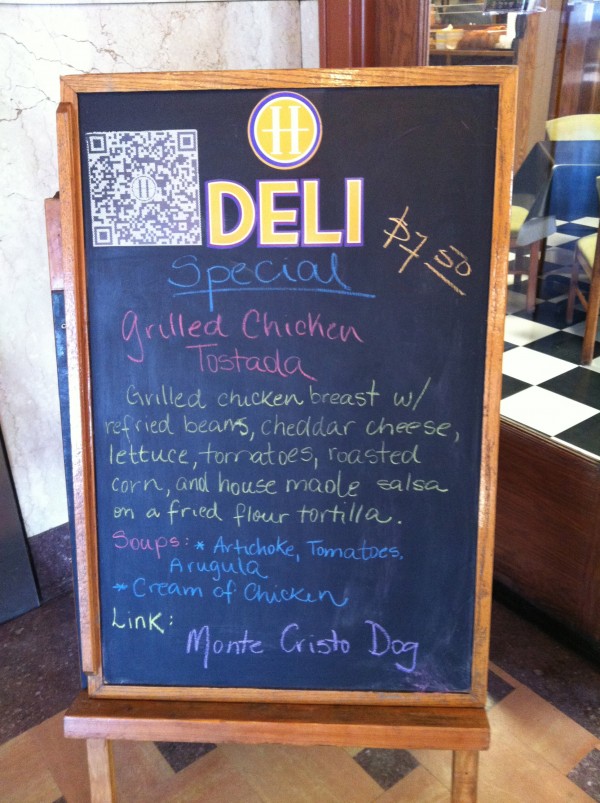 H
DELI
$7.50
Special
Grilled Chicken
Tostada
Grilled chicken breast w/
refried beans, cheddar cheese,
lettuce, tomatoes, roasted
corn, and house made salsa
on a fried flour tortilla.
Soups: * Artichoke, Tomatoes,
Arugula
* Cream of Chicken
Link:
Monte Cristo Dog